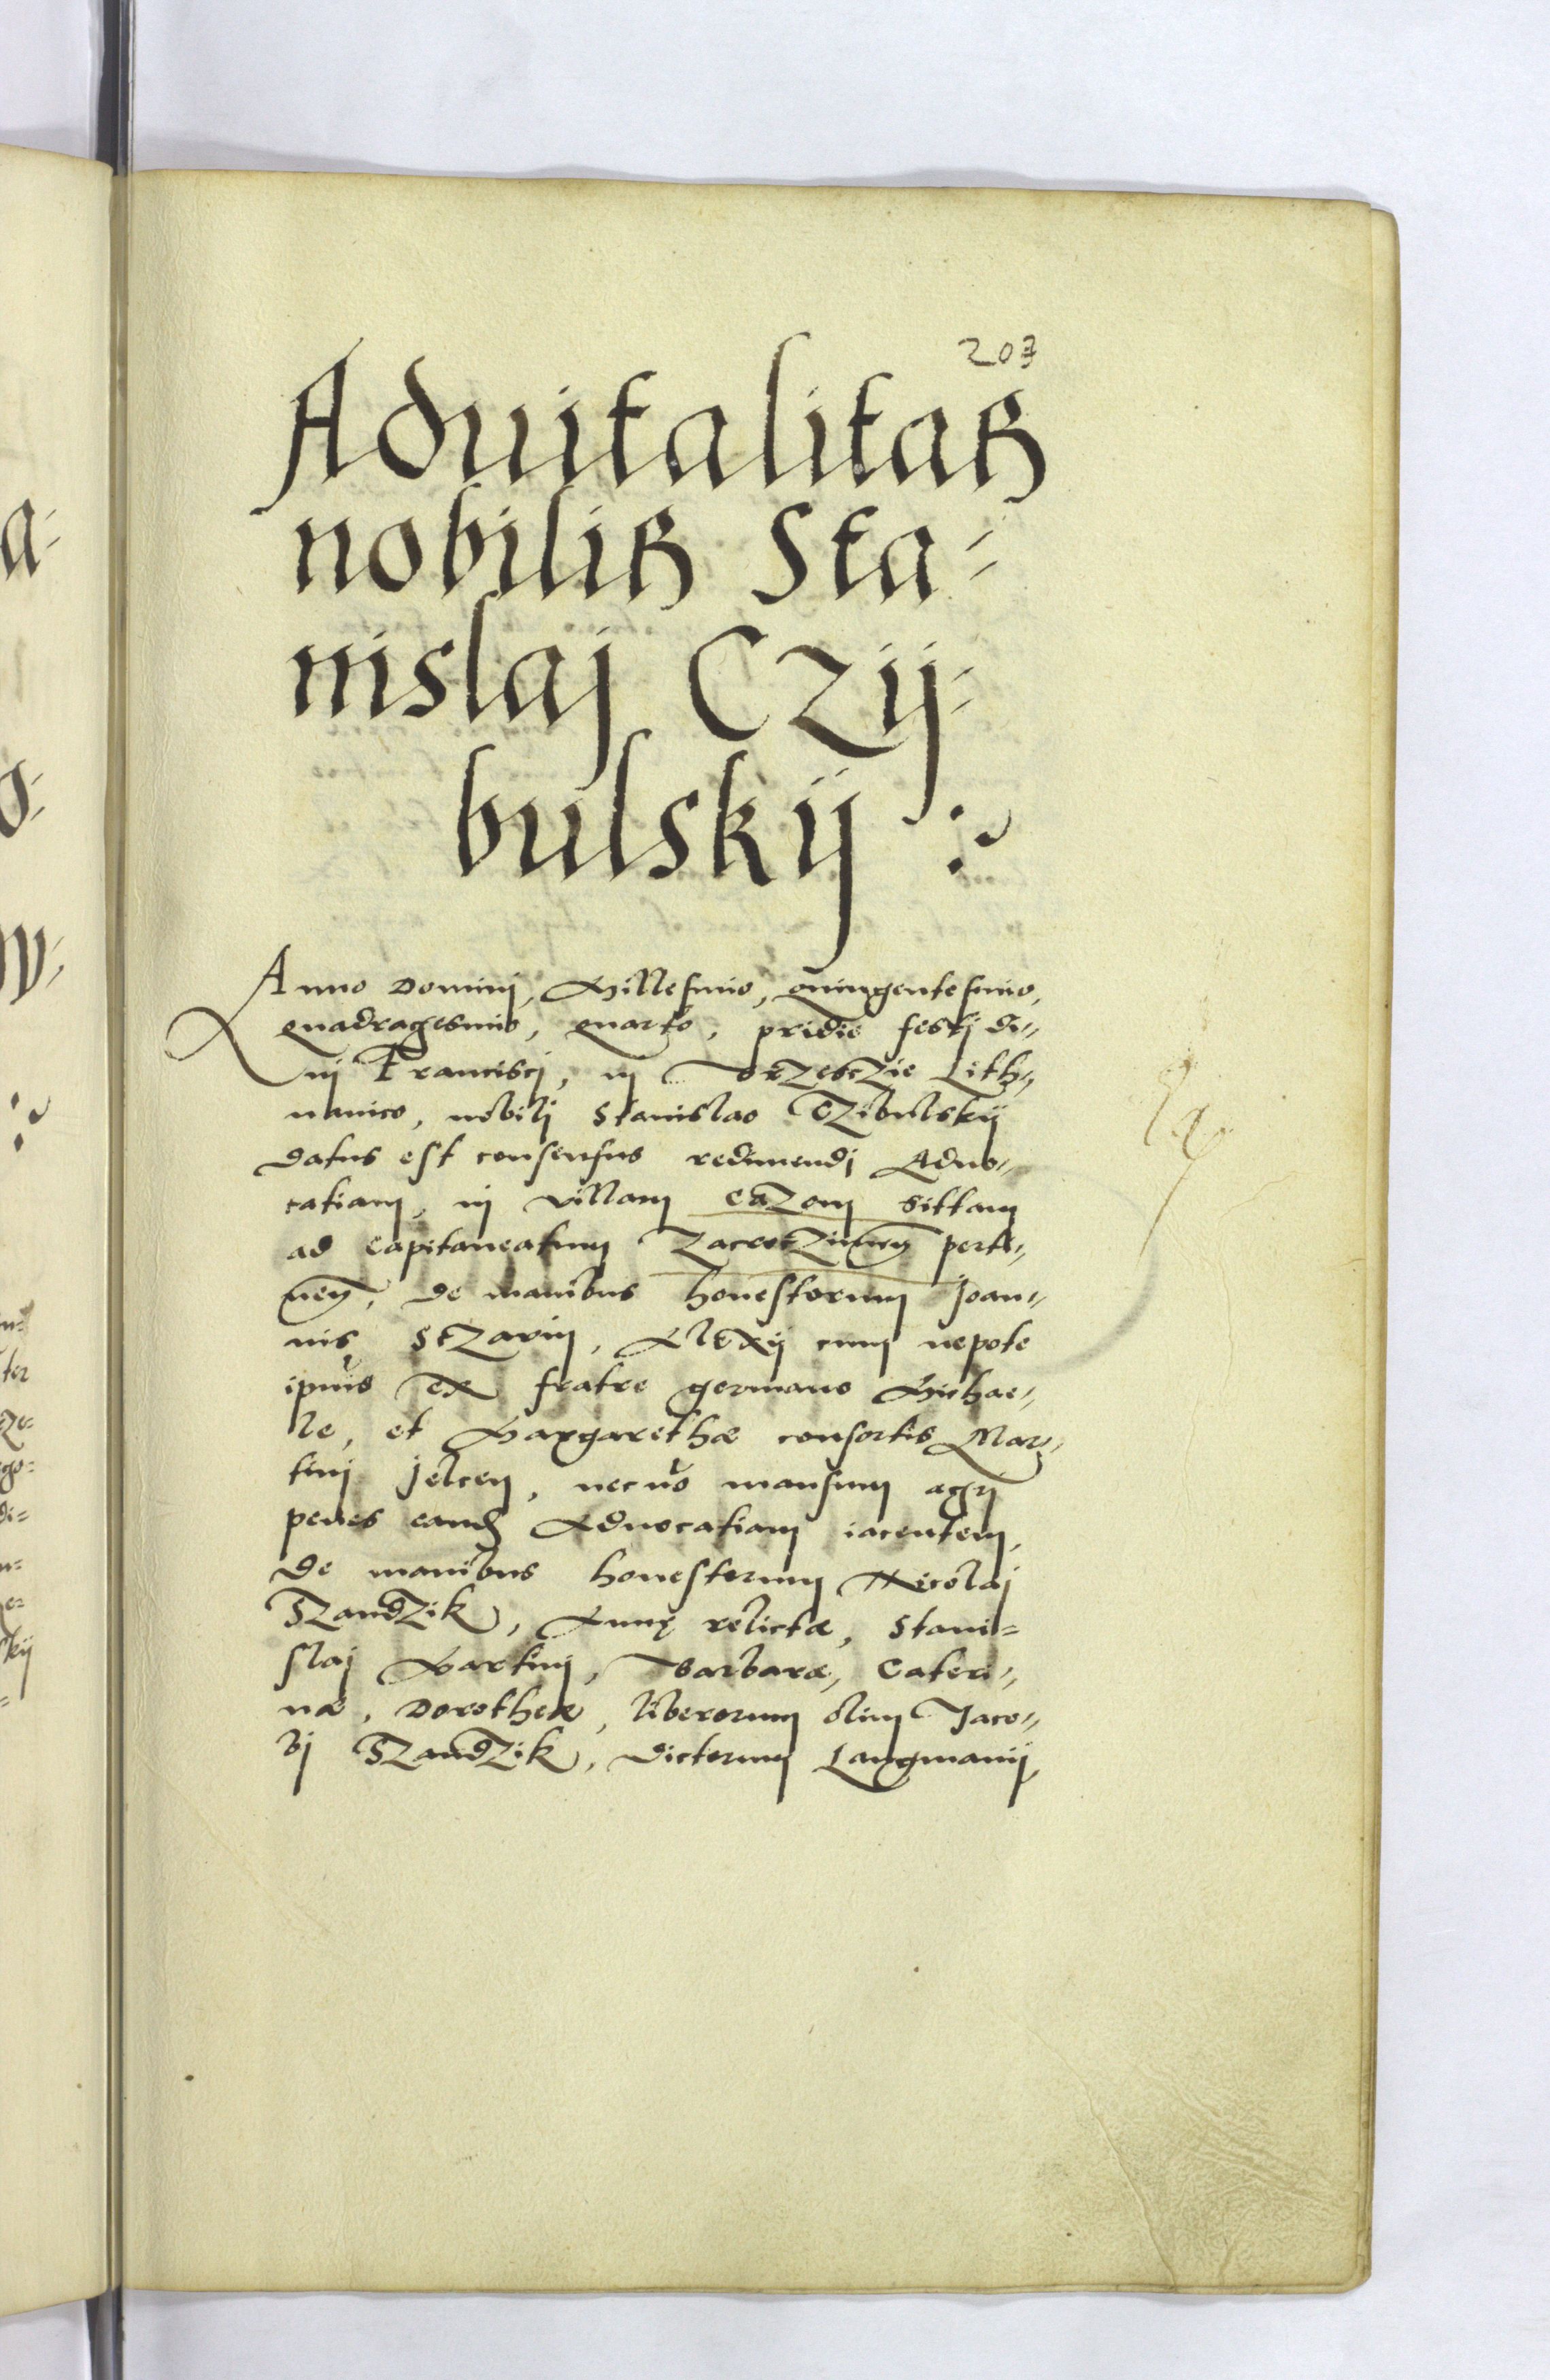 203
Aduitalitas
nobilis Sta-
nislaj Czÿ-
bulskÿ
Anno Domini, Millesimo, quingentesimo,
quadragesimo, quarto, pridie festj di-
vi Francisci, in Brzesczie Lith-
uanico, nobilj Stanislao Czibulskÿ
datus est consensus redimendj Aduo-
catiam, in villam Cazom sittam
ad Capitaneatum perti-
neñ, de manibus honestorum Joan-
nis Alexÿ cum nepote
ipius ex fratre germano Michae-
le, et Margarethæ consortis Mar-
tinj necno mansum agrj
penes eand Aduocatiam iacentem,
de manibus honestorum Nicolaj
Szandzik, Annę relictæ, Stani-
slaj Martinj, Barbaræ, Cateri-
næ, Dorotheæ, liberorum olim Jaco-
bj Szandzik, dictorum Langmanÿ,